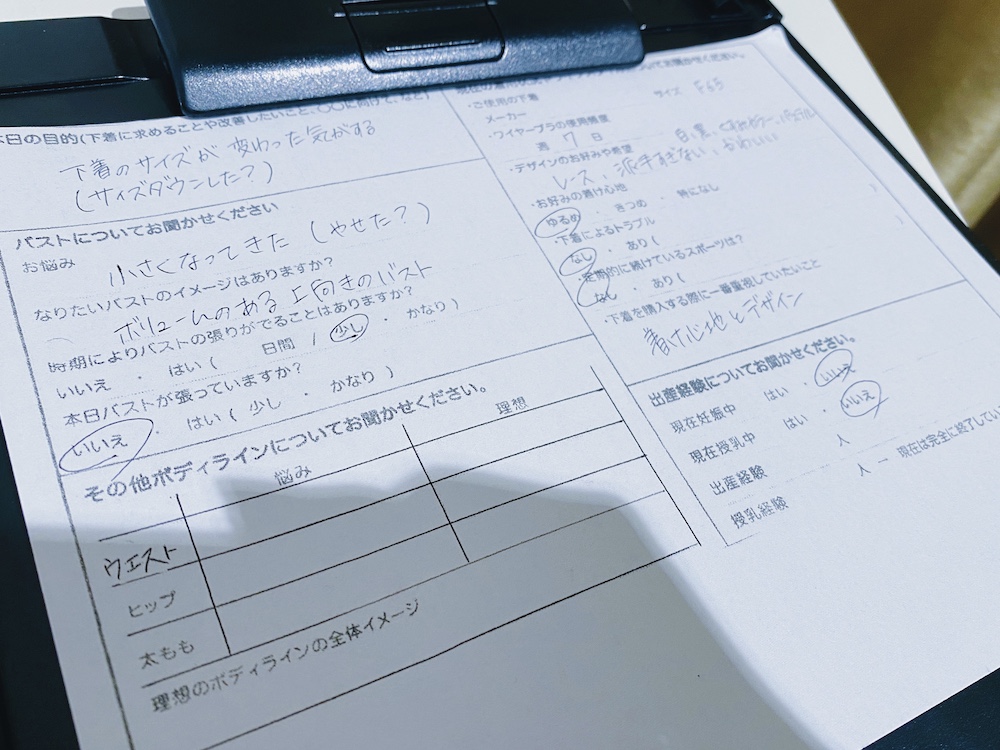 本日の目的(下着に求めることや改善したいこと、〇〇に向けて、など)
下着のサイズが変わった気がする
(サイズダウンした?)
バストについてお聞かせください
お悩み
小さくなってきた(やせた?)
なりたいバストのイメージはありますか?
ボリュームのある上向きのバスト
時期によりバストの張りがでることはありますか?
いいえ ・ はい( 日間 / 少し ・ かなり )
本日バストが張っていますか?
いいえ ・ はい( 少し ・ かなり )
その他ボディラインについてお聞かせください。
悩み 理想
ウエスト
ヒップ
太もも
理想のボディラインの全体イメージ
てお聞かせください。
・ご使用の下着
メーカー サイズ F65
・ワイヤーブラの使用頻度
週 7 日
・デザインのお好みや希望
レース、派手すぎない、かわいい
・お好みの着け心地
ゆるめ ・ きつめ ・ 特になし
・下着によるトラブル
なし ・ あり( )
・定期的に続けているスポーツは?
なし ・ あり( )
・下着を購入する際に一番重視していたいこと
着け心地とデザイン
出産経験についてお聞かせください。
現在妊娠中 はい ・ いいえ
現在授乳中 はい ・ いいえ
出産経験 人
授乳経験 人 ー 現在は完全に終了してい